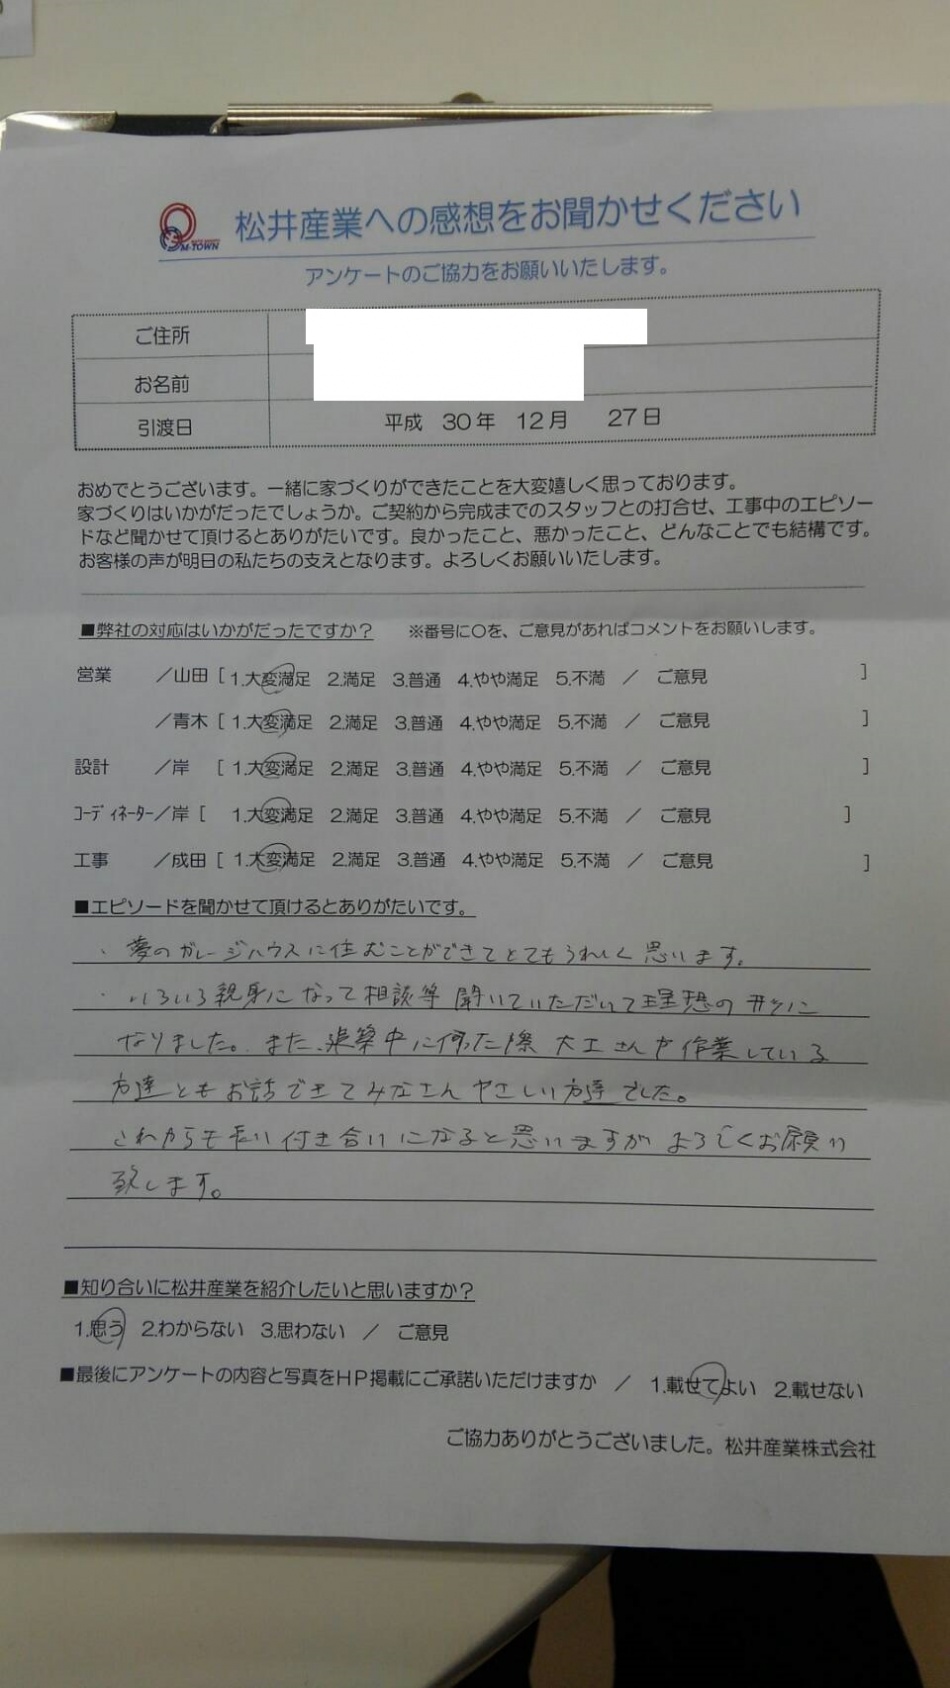 M-TOWN 松井産業への感想をお聞かせください
アンケートのご協力をお願いいたします。
ご住所
お名前
引渡日 平成 30年 12月 27日
おめでとうございます。一緒に家づくりができたことを大変嬉しく思っております。
家づくりはいかがだったでしょうか。ご契約から完成までのスタッフとの打合せ、工事中のエピソー
ドなど聞かせて頂けるとありがたいです。良かったこと、悪かったこと、どんなことでも結構です。
お客様の声が明日の私たちの支えとなります。よろしくお願いいたします。
■弊社の対応はいかがだったですか？ ※番号に〇を、ご意見があればコメントをお願いします。
営業 ／山田 [ 1.大変満足 2.満足 3.普通 4.やや満足 5.不満 ／ ご意見 ]
／青木 [ 1.大変満足 2.満足 3.普通 4.やや満足 5.不満 ／ ご意見 ]
設計 ／岸 [ 1.大変満足 2.満足 3.普通 4.やや満足 5.不満 ／ ご意見 ]
ｺｰﾃﾞｨﾈｰﾀｰ／岸 [ 1.大変満足 2.満足 3.普通 4.やや満足 5.不満 ／ ご意見 ]
工事 ／成田 [ 1.大変満足 2.満足 3.普通 4.やや満足 5.不満 ／ ご意見 ]
■エピソードを聞かせて頂けるとありがたいです。
・夢のガレージハウスに住むことができてとてもうれしく思います。
・いろいろ親身になって相談等聞いていただいて理想の形に
なりました。また、建築中に伺った際 大工さんや作業している
方達ともお話できてみなさんやさしい方達でした。
これからも長い付き合いになると思いますがよろしくお願い
致します。
■知り合いに松井産業を紹介したいと思いますか？
1.思う 2.わからない 3.思わない ／ ご意見
■最後にアンケートの内容と写真をＨＰ掲載にご承諾いただけますか ／ 1.載せてよい 2.載せない
ご協力ありがとうございました。松井産業株式会社